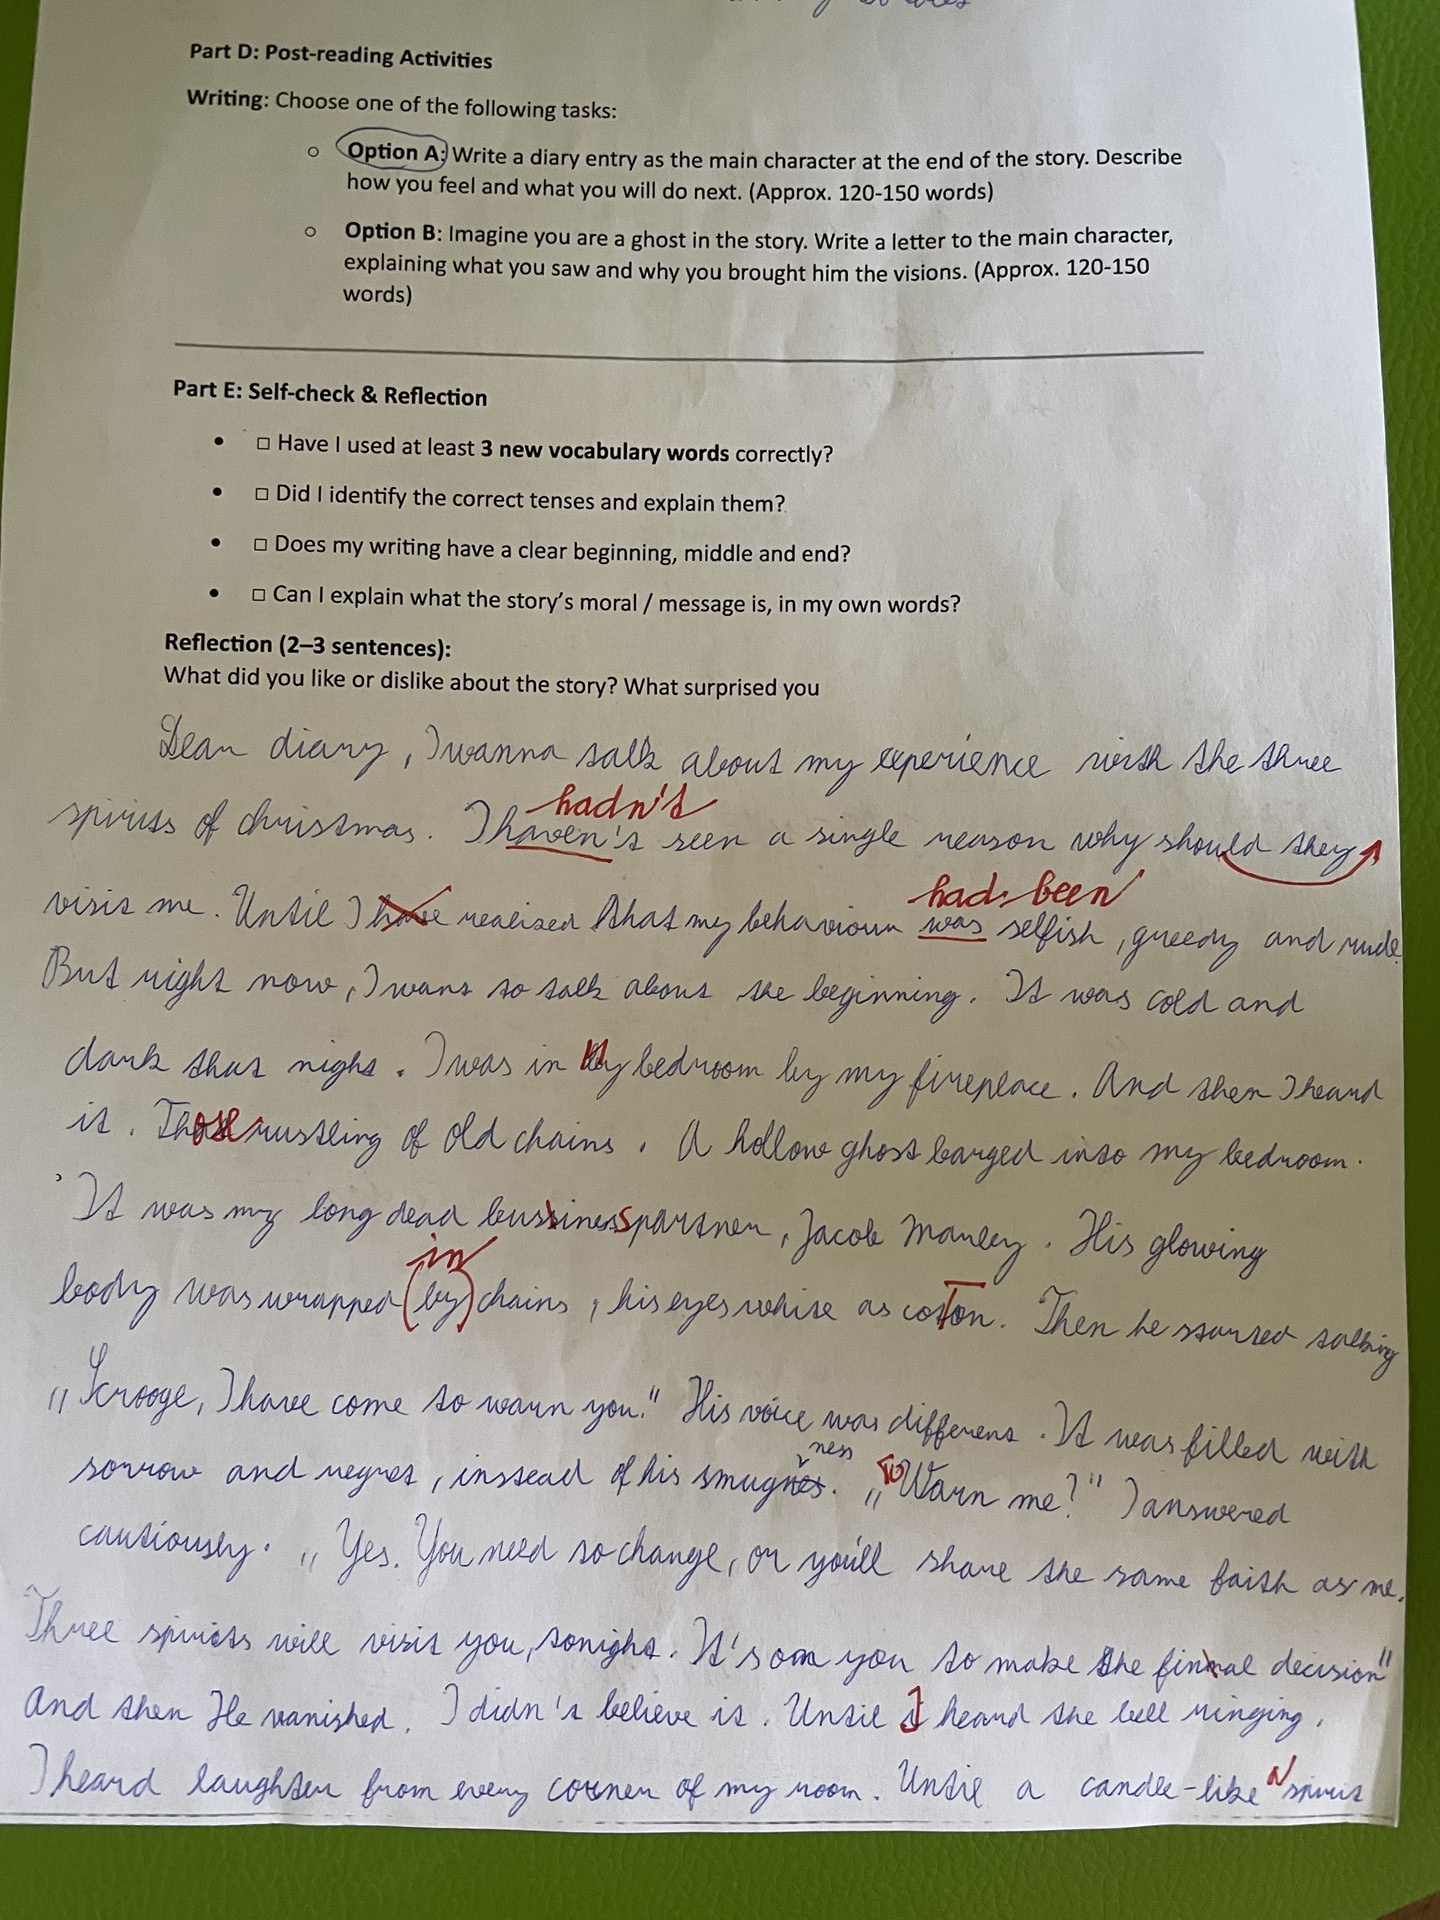 Part D: Post-reading Activities
Writing: Choose one of the following tasks:
○ Option A: Write a diary entry as the main character at the end of the story. Describe
how you feel and what you will do next. (Approx. 120-150 words)
○ Option B: Imagine you are a ghost in the story. Write a letter to the main character,
explaining what you saw and why you brought him the visions. (Approx. 120-150
words)
Part E: Self-check & Reflection
• □ Have I used at least 3 new vocabulary words correctly?
• □ Did I identify the correct tenses and explain them?
• □ Does my writing have a clear beginning, middle and end?
• □ Can I explain what the story's moral / message is, in my own words?
Reflection (2–3 sentences):
What did you like or dislike about the story? What surprised you
Dear diary, I wanna talk about my experience with the three
hadn't
spirits of christmas. I haven't seen a single reason why should they
had been
visit me. Until I have realised that my behaviour was selfish, greedy and rude.
But right now, I want to talk about the beginning. It was cold and
dark that night. I was in my bedroom by my fireplace. And then I heard
it. Those rustling of old chains. A hollow ghost barged into my bedroom.
It was my long dead bussiness partner, Jacob Marley. His glowing
in
body was wrapped (by) chains, his eyes white as coTon. Then he started talking
„Scrooge, I have come to warn you." His voice was different. It was filled with
ness
sorrow and regret, instead of his smugnes. „To Warn me?" I answered
cautiously. „Yes. You need to change, or you'll share the same faith as me.
Three spirits will visit you, tonight. It's on you to make the finnal decision"
And then He vanished. I didn't believe it. Until I heard the bell ringing.
I heard laughter from every corner of my room. Until a candle-like spirit